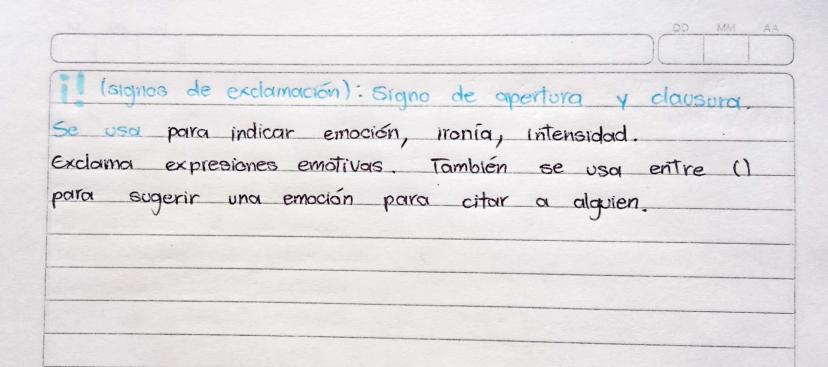 DD MM AA
¡! (signos de exclamación): Signo de apertura y clausura.
Se usa para indicar emoción, ironía, intensidad.
Exclama expresiones emotivas. También se usa entre ()
para sugerir una emoción para citar a alguien.